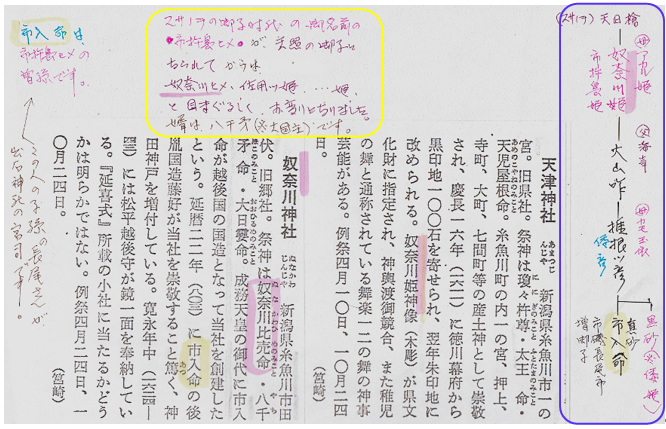 天津神社 新潟県糸魚川市一の
あまつじんじゃ
宮。旧県社。祭神は瓊々杵尊・太玉命・
天児屋根命。糸魚川町の内一の宮、押上、
寺町、大町、七間町等の産土神として崇敬
され、慶長一六年(一六一一)に徳川幕府から
黒印地一〇〇石を寄せられ、翌年朱印地に
改められる。奴奈川姫神像(木彫)が県文
化財に指定され、神輿渡御競合、また稚児
の舞と通称されている舞楽一二の舞の神事
芸能がある。例祭四月一〇日、一〇月二四
日。 (宮崎)
奴奈川神社 新潟県糸魚川市田
ぬながわじんじゃ
伏。旧郷社。祭神は奴奈川比売命・八千
矛命・大日孁命。成務天皇の御代に市入
命が越後国の国造となって当社を創建した
という。延暦二二年(八〇三)に市入命の後
胤国造藤好が当社を崇敬すること篤く、神
田神戸を増付している。寛永年中(一六二四—
四四)には松平越後守が鏡一面を奉納してい
る。『延喜式』所載の小社に当たるかどう
かは明らかではない。例祭四月二四日、一
〇月二四日。 (宮崎)
(スサノヲ) 天日槍
奴奈川姫
市杵島姫
大山咋
父 海幸
市入命
スサノヲの御子時代の御名前の
市杵島ヒメ が 天照の御子と
なられて からは
奴奈川ヒメ、佐用ツ姫…姫、
と目まぐるしく お変りとなりました。
婿は八千矛(※大国主)です。
市入命は、
市杵島ヒメの
皆孫です。
この人の子孫の長尾さんが
出石神社の宮司です。